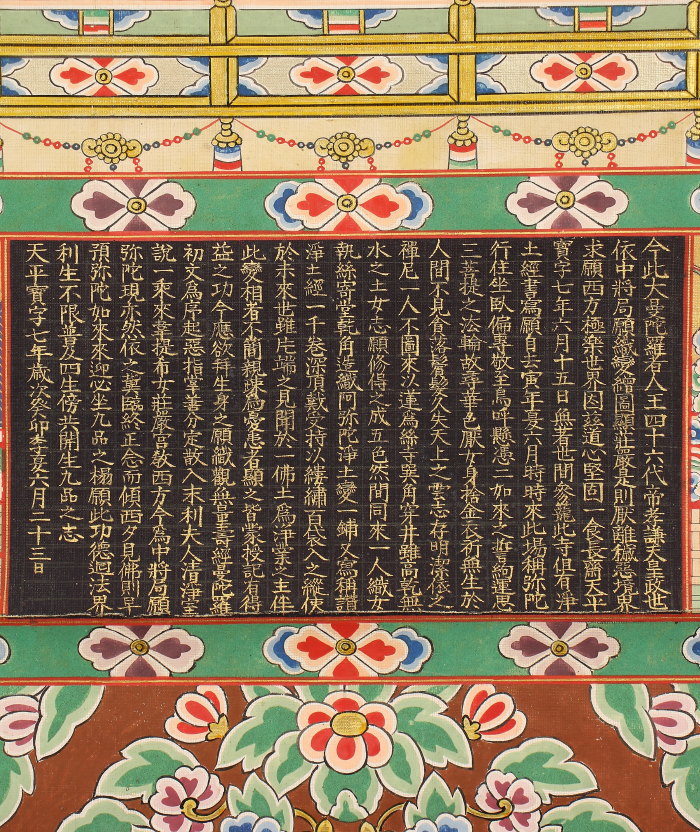 今此大曼陀羅者人王四十六代帝孝謙天皇敬世
依中將局願織變繪圖顯莊嚴是則厭離穢惡境界
求願西方極楽世界因茲道心堅固一食長齋天平
寳字七年六月十五日無着世間参籠此寺但有淨
土經書寫願自去寅年夏六月時時來此場稱弥陀
行住坐臥偏專敬至烏呼懸憑二如來之誓約運思
三菩提之法輪故辱華色厭女身捨金衣祈無生於
人間不見食落鬢髪人天天上之雲志存明潔依之
禪尼一人不圖來以蓮為絲寺巽角穿井雖高乾無
水之土女志願修得之成五色然間同來一人織女
執絲寄堂乾角造織阿弥陀淨土變一鋪又寫稱讃
淨土經一千巻深頂戴受持以縷繡自入之縱使
於未來世雖片端之見聞於一佛土為淨業之主伴
此變相者不簡親疎為愛恚者顕之皆蒙授記有得
益之功今應欲拜生身之願織觀無量壽經曼陀羅
初文為序起惡指掌善分定散入末利夫人清淨業
說一乘來菩提布女莊嚴宮教西方今為中將局願
弥陀現亦然依之冀臨終正念而傾西夕見佛則早
預弥陀如來來迎必坐九品之榻願此功德迴法界
利生不限普及四生傍共開生九品之志
天平寶字七年歳次癸卯季夏六月二十三日